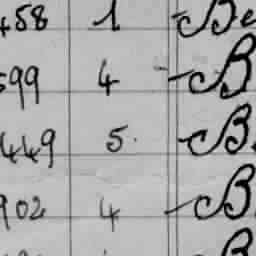 458 1 Be
599 4 B
449 5. B
902 4 B
B